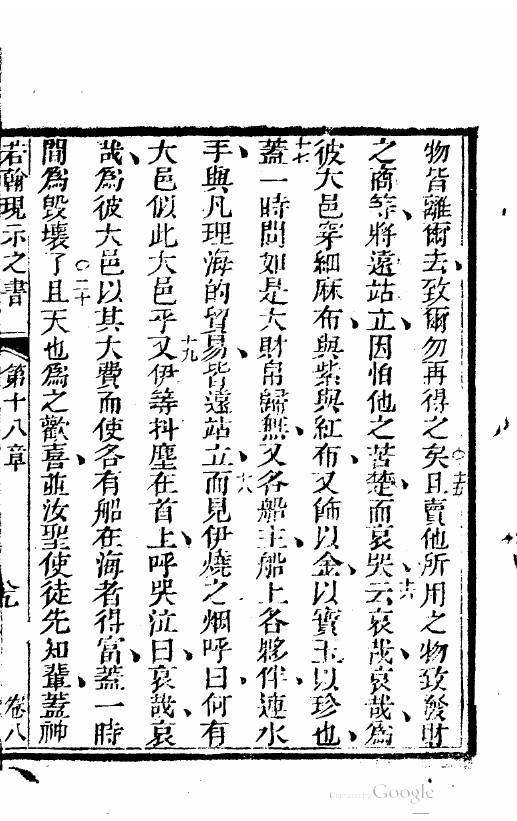 物皆離爾去致爾勿再得之矣○十五且賣他所用之物致發財
之商等將遠站立因怕他之苦楚而哀哭十六云哀哉哀哉爲
彼大邑穿細麻布與紫與紅布又飾以金以寶玉以珍也
十七蓋一時間如是大財帛歸無又各船主船上各夥伴連水
手與凡理海的貿易皆遠站立十八而見伊燒之烟呼曰何有
大邑似此大邑乎十九又伊等抖塵在首上呼哭泣曰哀哉哀
哉爲彼大邑以其大費而使各有船在海者得富蓋一時
間爲毀壞了○二十且天也爲之歡喜並汝聖使徒先知輩蓋神
若翰現示之書 第十八章 卷八
Digitized by Google